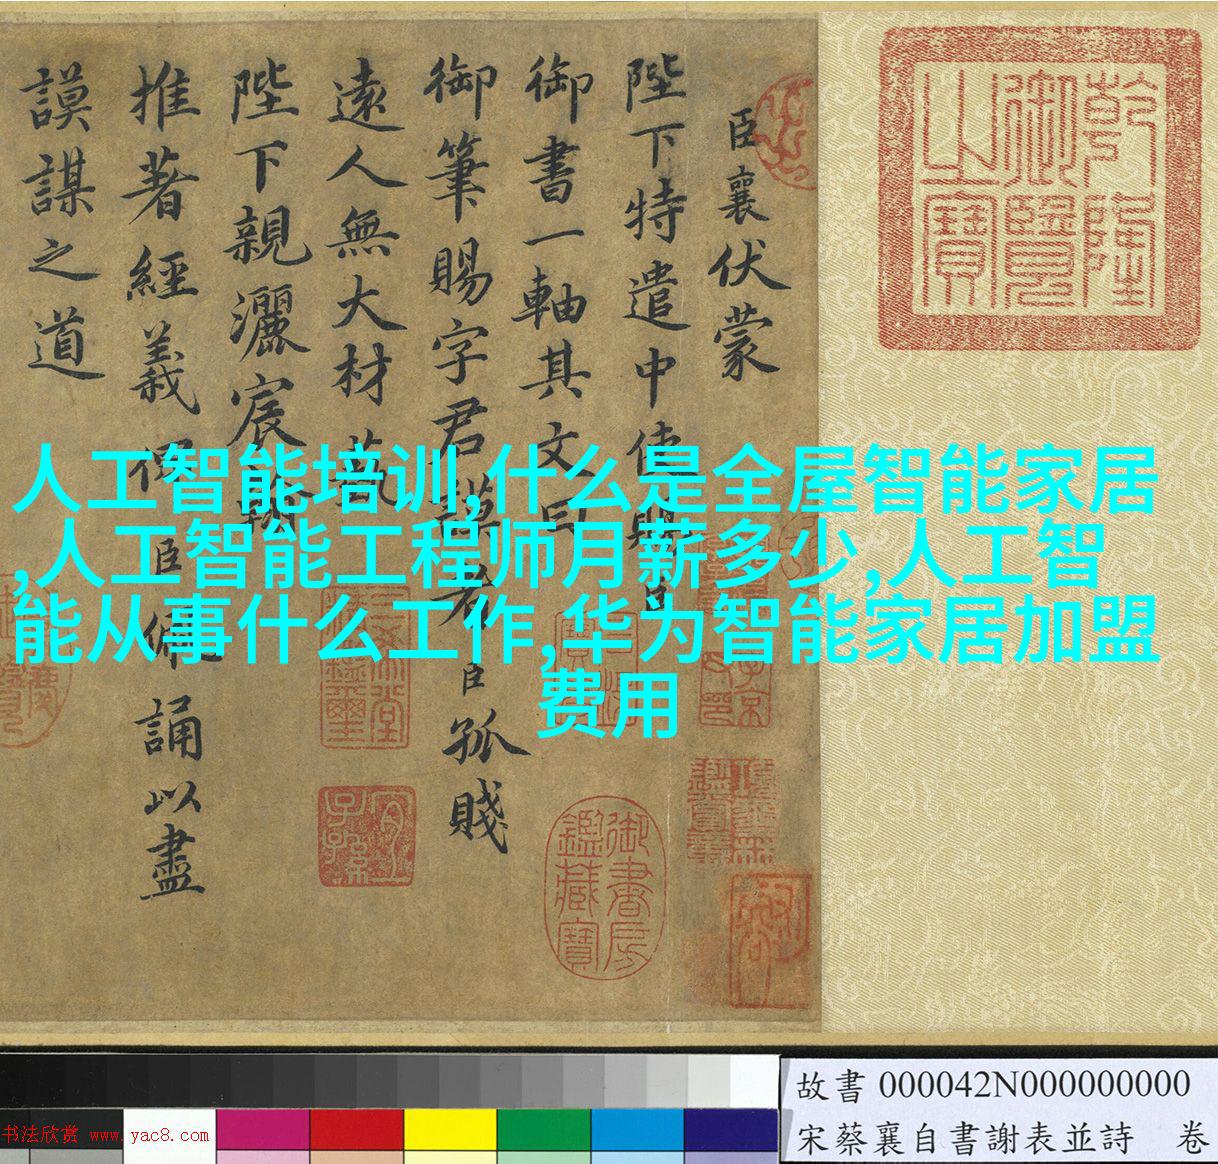 乾隆
御覽
之寶
臣襄伏蒙
陛下特遣中使賜臣
御書一軸其文曰
御筆賜字君謨者臣孤賤
遠人無大材藝
陛下親灑宸翰
推著經義俾臣佩誦以盡
謨謀之道
人工智能培训,什么是全屋智能家居
,人工智能工程师月薪多少,人工智
能从事什么工作,华为智能家居加盟
费用
三希堂
精鑑璽
宜
子孫
御書房
鑑藏寶
故書 000042N000000000
宋蔡襄自書謝表並詩 卷
书法欣赏 www.yac8.com